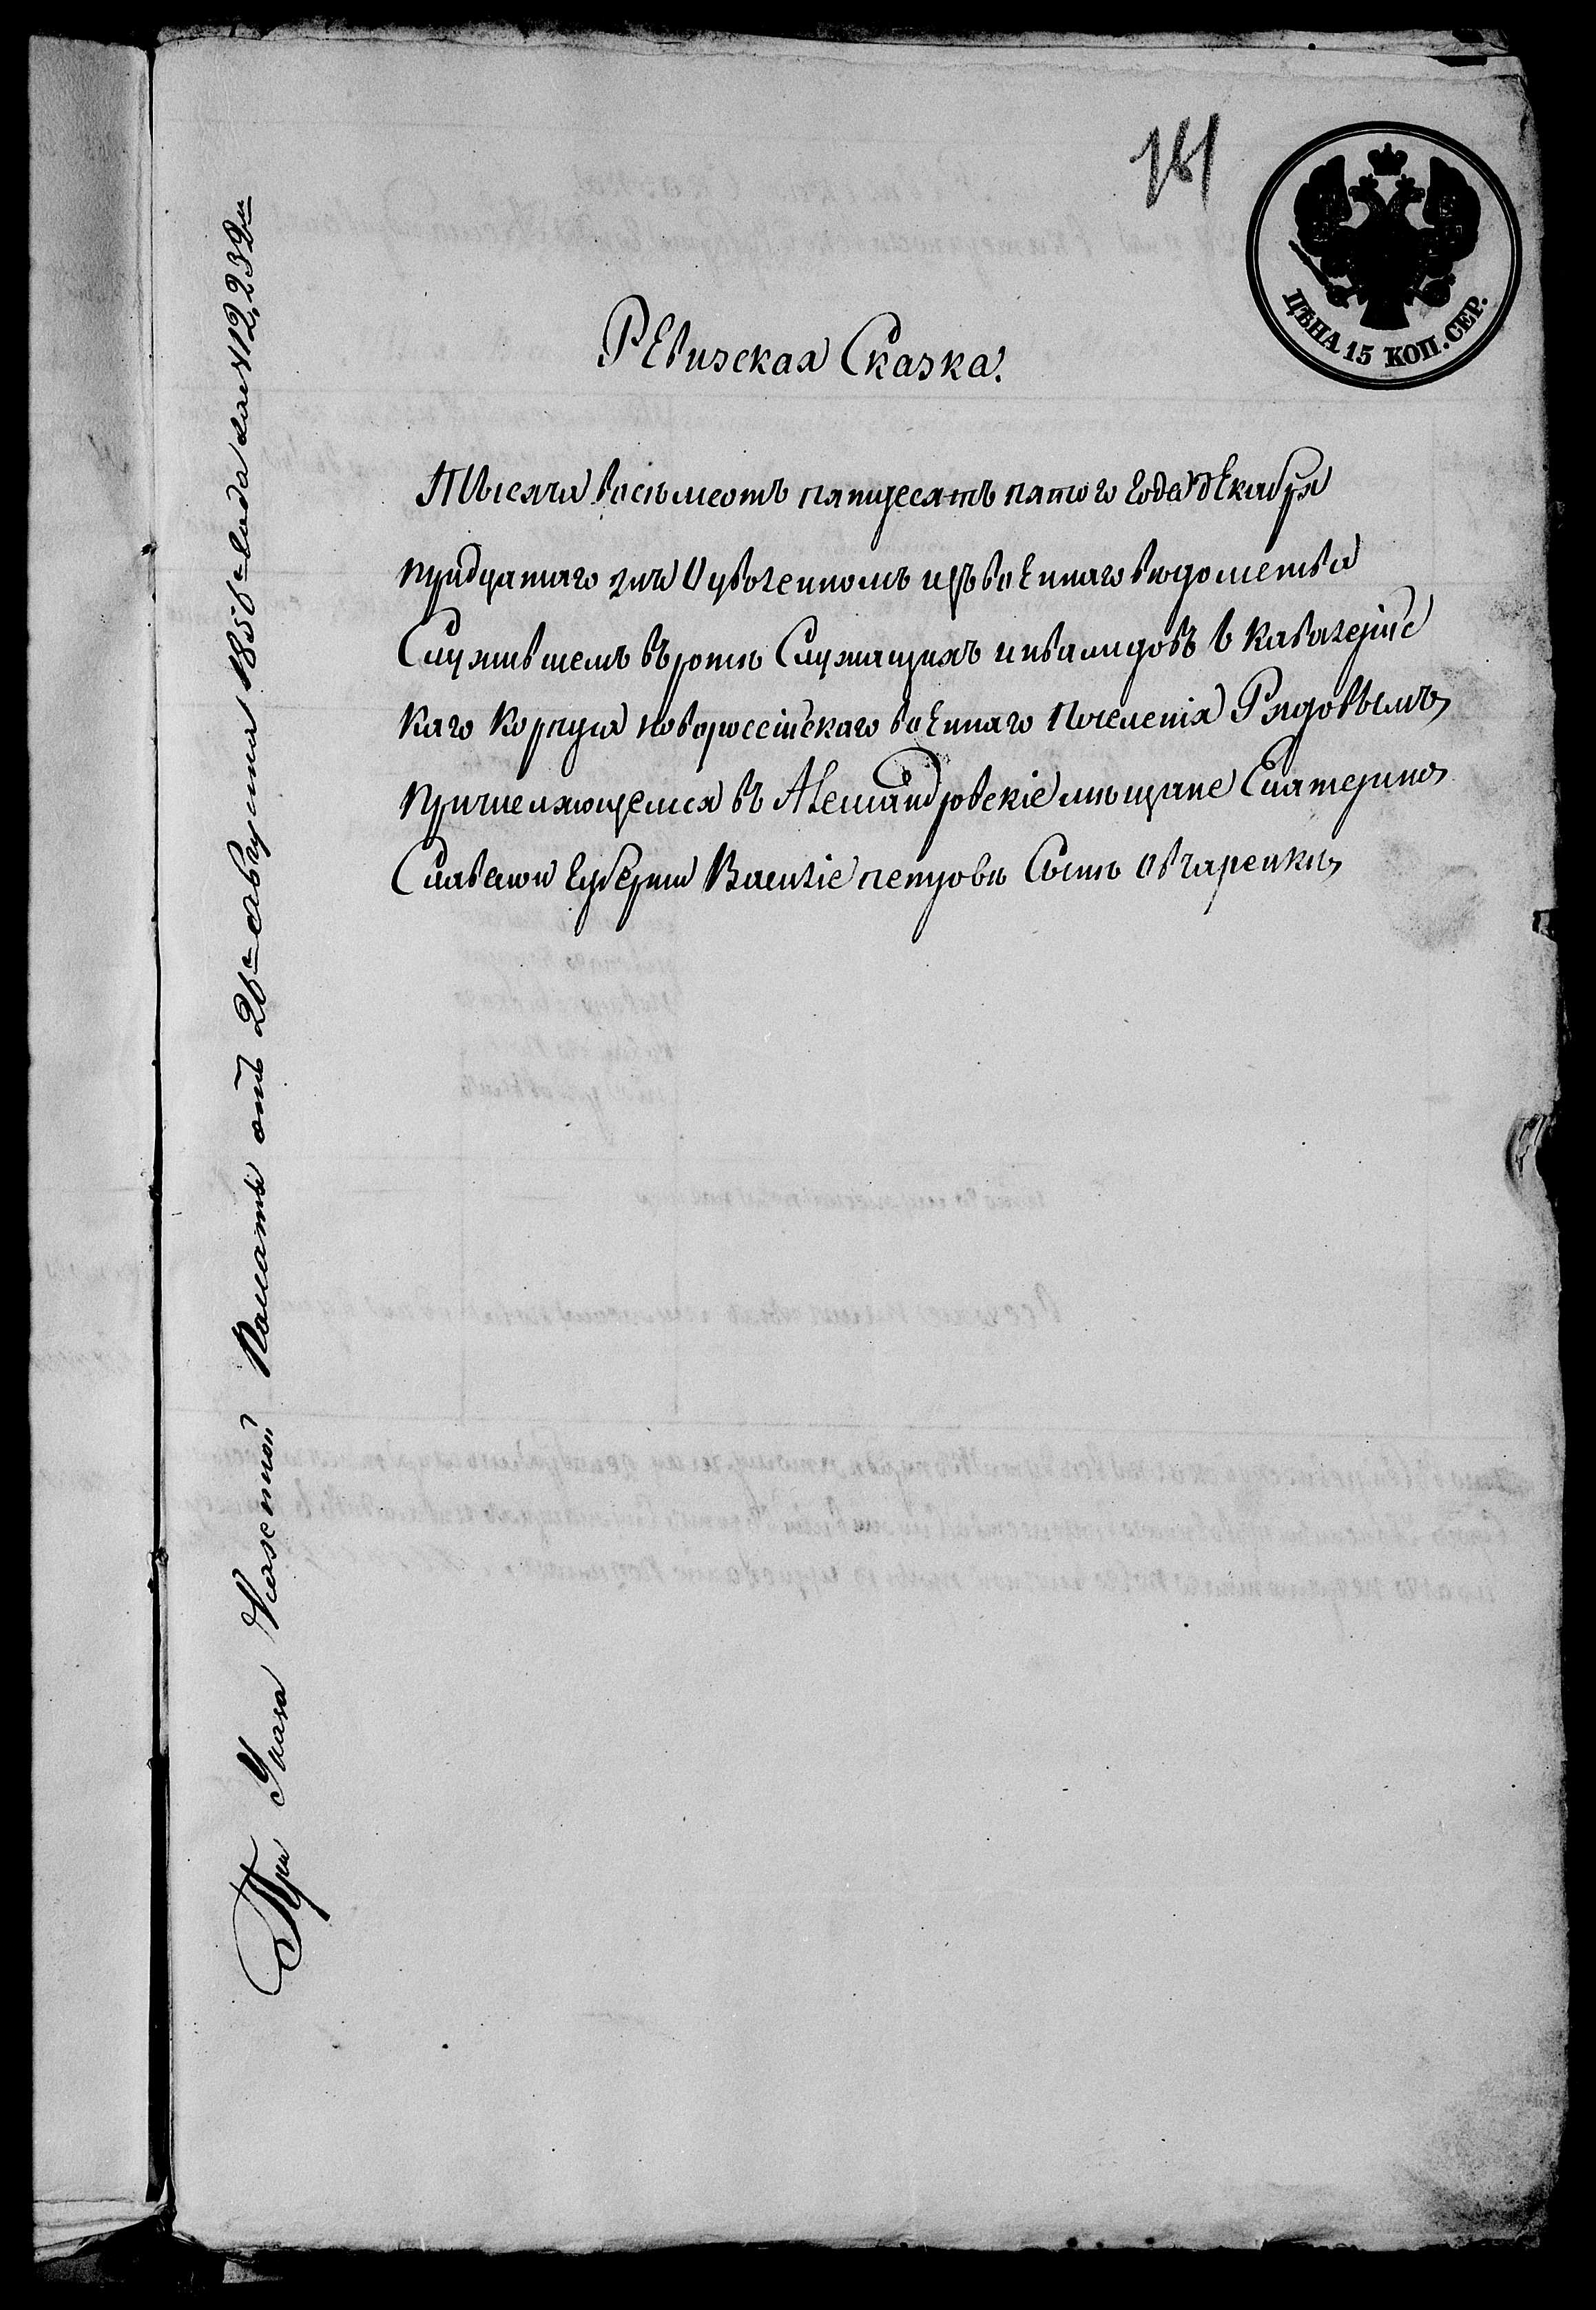 181
ЦѢНА 15 КОП. СЕР.
Ревизская Сказка.
Тысяча восьмсотъ пятдесятъ пятого Года декабря
тридцатаго дня О уволенномъ изъ военнаго вѣдомства
Служившемъ въ ротѣ Служащихъ инвалидовъ в Кавалерійс
каго Корпуса новороссійскаго военнаго Поселенія Рядовымъ
причисляющемся въ Александровскіе мѣщане Екатерино
Славской Губерніи Василіе петровѣ Сынѣ Овчаренкѣ
При Указѣ Казенной Палаты отъ 26го Августа 1856го Года за № 12,232м